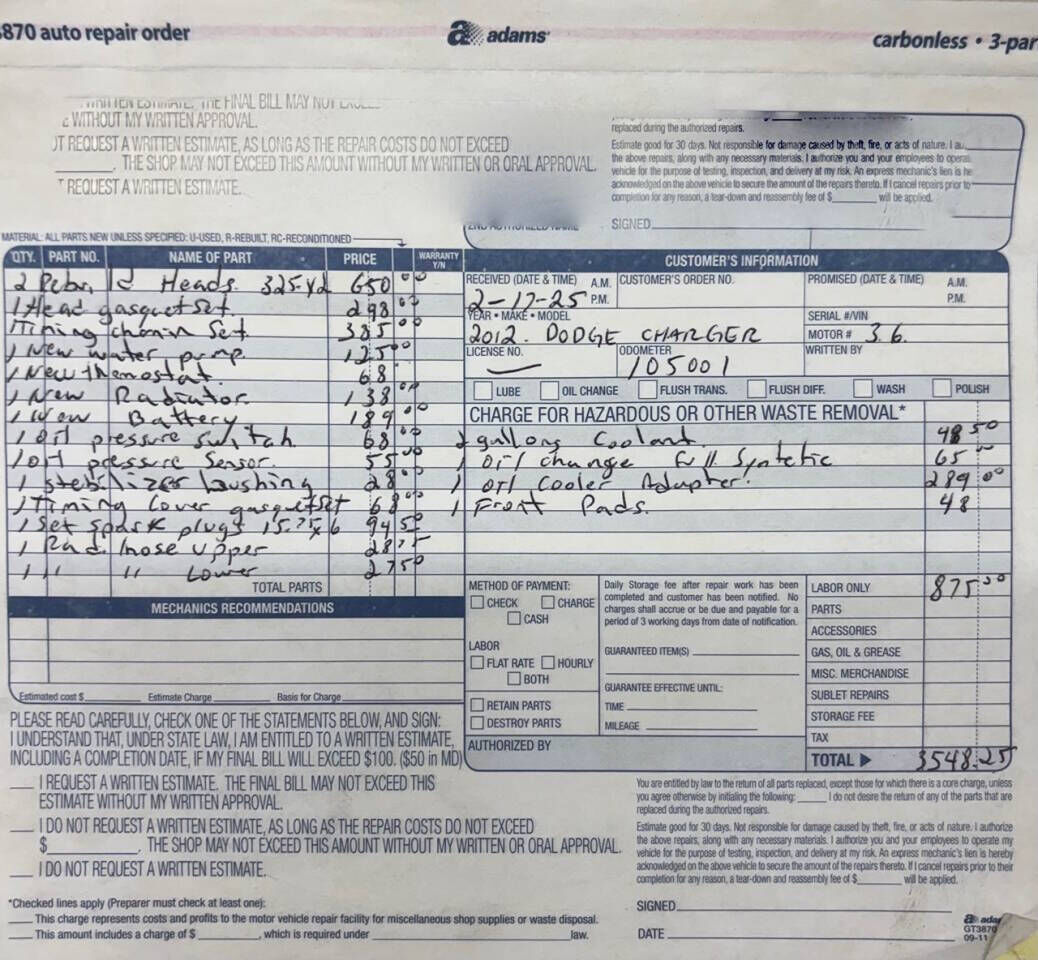 870 auto repair order
adams
carbonless • 3-par
WITHOUT MY WRITTEN APPROVAL.
OT REQUEST A WRITTEN ESTIMATE, AS LONG AS THE REPAIR COSTS DO NOT EXCEED
THE SHOP MAY NOT EXCEED THIS AMOUNT WITHOUT MY WRITTEN OR ORAL APPROVAL.
REQUEST A WRITTEN ESTIMATE.
replaced during the authorized repairs.
Estimate good for 30 days. Not responsible for damage caused by theft, fire, or acts of nature. I au
the above repairs, along with any necessary materials. I authorize you and your employees to operat
vehicle for the purpose of testing, inspection, and delivery at my risk. An express mechanic's lien is he
acknowledged on the above vehicle to secure the amount of the repairs thereto. If I cancel repairs prior to
completion for any reason, a tear-down and reassembly fee of $ will be applied.
SIGNED
MATERIAL: ALL PARTS NEW UNLESS SPECIFIED: U-USED, R-REBUILT, RC-RECONDITIONED
QTY. PART NO. NAME OF PART PRICE WARRANTY Y/N
2 Heads 325 x2 650 00
1 Head gasquet set. 298 00
1 Timing chanin set 385 00
1 New water pump 125 00
1 New themostat. 68
1 New Radiator 138 00
1 New Battery 189 00
1 oil pressure switah 68 00
1 oil pressure sensor. 55 00
1 stebilizer bushing 28 00
1 Timing cover gasquet set 68 00
1 set spark plugs 15.75 x 6 94 50
1 Rad. hose upper 28 75
1 " " Lower 27 50
TOTAL PARTS
MECHANICS RECOMMENDATIONS
Estimated cost $ Estimate Charge Basis for Charge
CUSTOMER'S INFORMATION
RECEIVED (DATE & TIME) A.M. P.M.
2-17-25
CUSTOMER'S ORDER NO.
PROMISED (DATE & TIME) A.M. P.M.
YEAR • MAKE • MODEL
2012. DODGE CHARGER
SERIAL #/VIN
MOTOR # 3.6.
LICENSE NO.
ODOMETER
105001
WRITTEN BY
LUBE OIL CHANGE FLUSH TRANS. FLUSH DIFF. WASH POLISH
CHARGE FOR HAZARDOUS OR OTHER WASTE REMOVAL*
2 gallons Coolant. 48 50
1 oil change full syntetic 65
1 oil cooler Adapter. 289 00
1 Front Pads. 48
METHOD OF PAYMENT:
CHECK CHARGE
CASH
LABOR
FLAT RATE HOURLY
BOTH
RETAIN PARTS
DESTROY PARTS
AUTHORIZED BY
Daily Storage fee after repair work has been
completed and customer has been notified. No
charges shall accrue or be due and payable for a
period of 3 working days from date of notification.
GUARANTEED ITEM(S)
GUARANTEE EFFECTIVE UNTIL:
TIME
MILEAGE
LABOR ONLY 875 00
PARTS
ACCESSORIES
GAS, OIL & GREASE
MISC. MERCHANDISE
SUBLET REPAIRS
STORAGE FEE
TAX
TOTAL 3548.25
PLEASE READ CAREFULLY, CHECK ONE OF THE STATEMENTS BELOW, AND SIGN:
I UNDERSTAND THAT, UNDER STATE LAW, I AM ENTITLED TO A WRITTEN ESTIMATE,
INCLUDING A COMPLETION DATE, IF MY FINAL BILL WILL EXCEED $100. ($50 in MD)
I REQUEST A WRITTEN ESTIMATE. THE FINAL BILL MAY NOT EXCEED THIS
ESTIMATE WITHOUT MY WRITTEN APPROVAL.
I DO NOT REQUEST A WRITTEN ESTIMATE, AS LONG AS THE REPAIR COSTS DO NOT EXCEED
$ . THE SHOP MAY NOT EXCEED THIS AMOUNT WITHOUT MY WRITTEN OR ORAL APPROVAL.
I DO NOT REQUEST A WRITTEN ESTIMATE.
*Checked lines apply (Preparer must check at least one):
This charge represents costs and profits to the motor vehicle repair facility for miscellaneous shop supplies or waste disposal.
This amount includes a charge of $ , which is required under law.
You are entitled by law to the return of all parts replaced, except those for which there is a core charge, unless
you agree otherwise by initialing the following: I do not desire the return of any of the parts that are
replaced during the authorized repairs.
Estimate good for 30 days. Not responsible for damage caused by theft, fire, or acts of nature. I authorize
the above repairs, along with any necessary materials. I authorize you and your employees to operate my
vehicle for the purpose of testing, inspection, and delivery at my risk. An express mechanic's lien is hereby
acknowledged on the above vehicle to secure the amount of the repairs thereto. If I cancel repairs prior to their
completion for any reason, a tear-down and reassembly fee of $ will be applied.
SIGNED
DATE
adar
GT3870
09-11